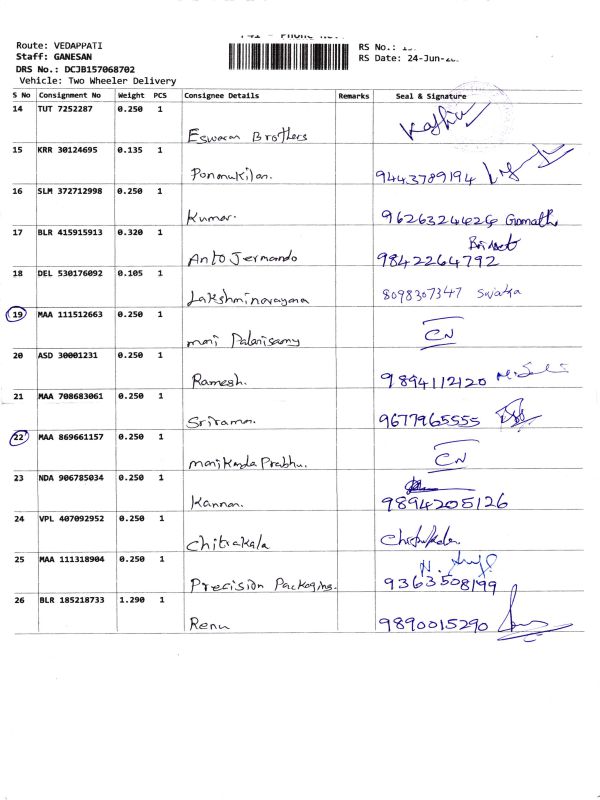 Route: VEDAPPATI
Staff: GANESAN
DRS No.: DCJB157068702
Vehicle: Two Wheeler Delivery
RS No.:
RS Date: 24-Jun-
S No Consignment No Weight PCS Consignee Details Remarks Seal & Signature
14 TUT 7252287 0.250 1
Eswaran Brothers
15 KRR 30124695 0.135 1
Ponmukilan. 9443789194
16 SLM 372712998 0.250 1
Kumar. 9626324426 Gomathi
17 BLR 415915913 0.320 1
Anto Jermando 9842264792
18 DEL 530176092 0.105 1
Lakshminarayana 8098307347 Sujatha
19 MAA 111512663 0.250 1
mari Palanisamy CN
20 ASD 30001231 0.250 1
Ramesh. 9894112120
21 MAA 708683061 0.250 1
Sriraman. 9677965555
22 MAA 869661157 0.250 1
manikanda Prabhu. CN
23 NDA 906785034 0.250 1
Kannan. 9894205126
24 VPL 407092952 0.250 1
Chitrakala
25 MAA 111318904 0.250 1
Precision Packaging. 9363508199
26 BLR 185218733 1.290 1
Renu 9890015290